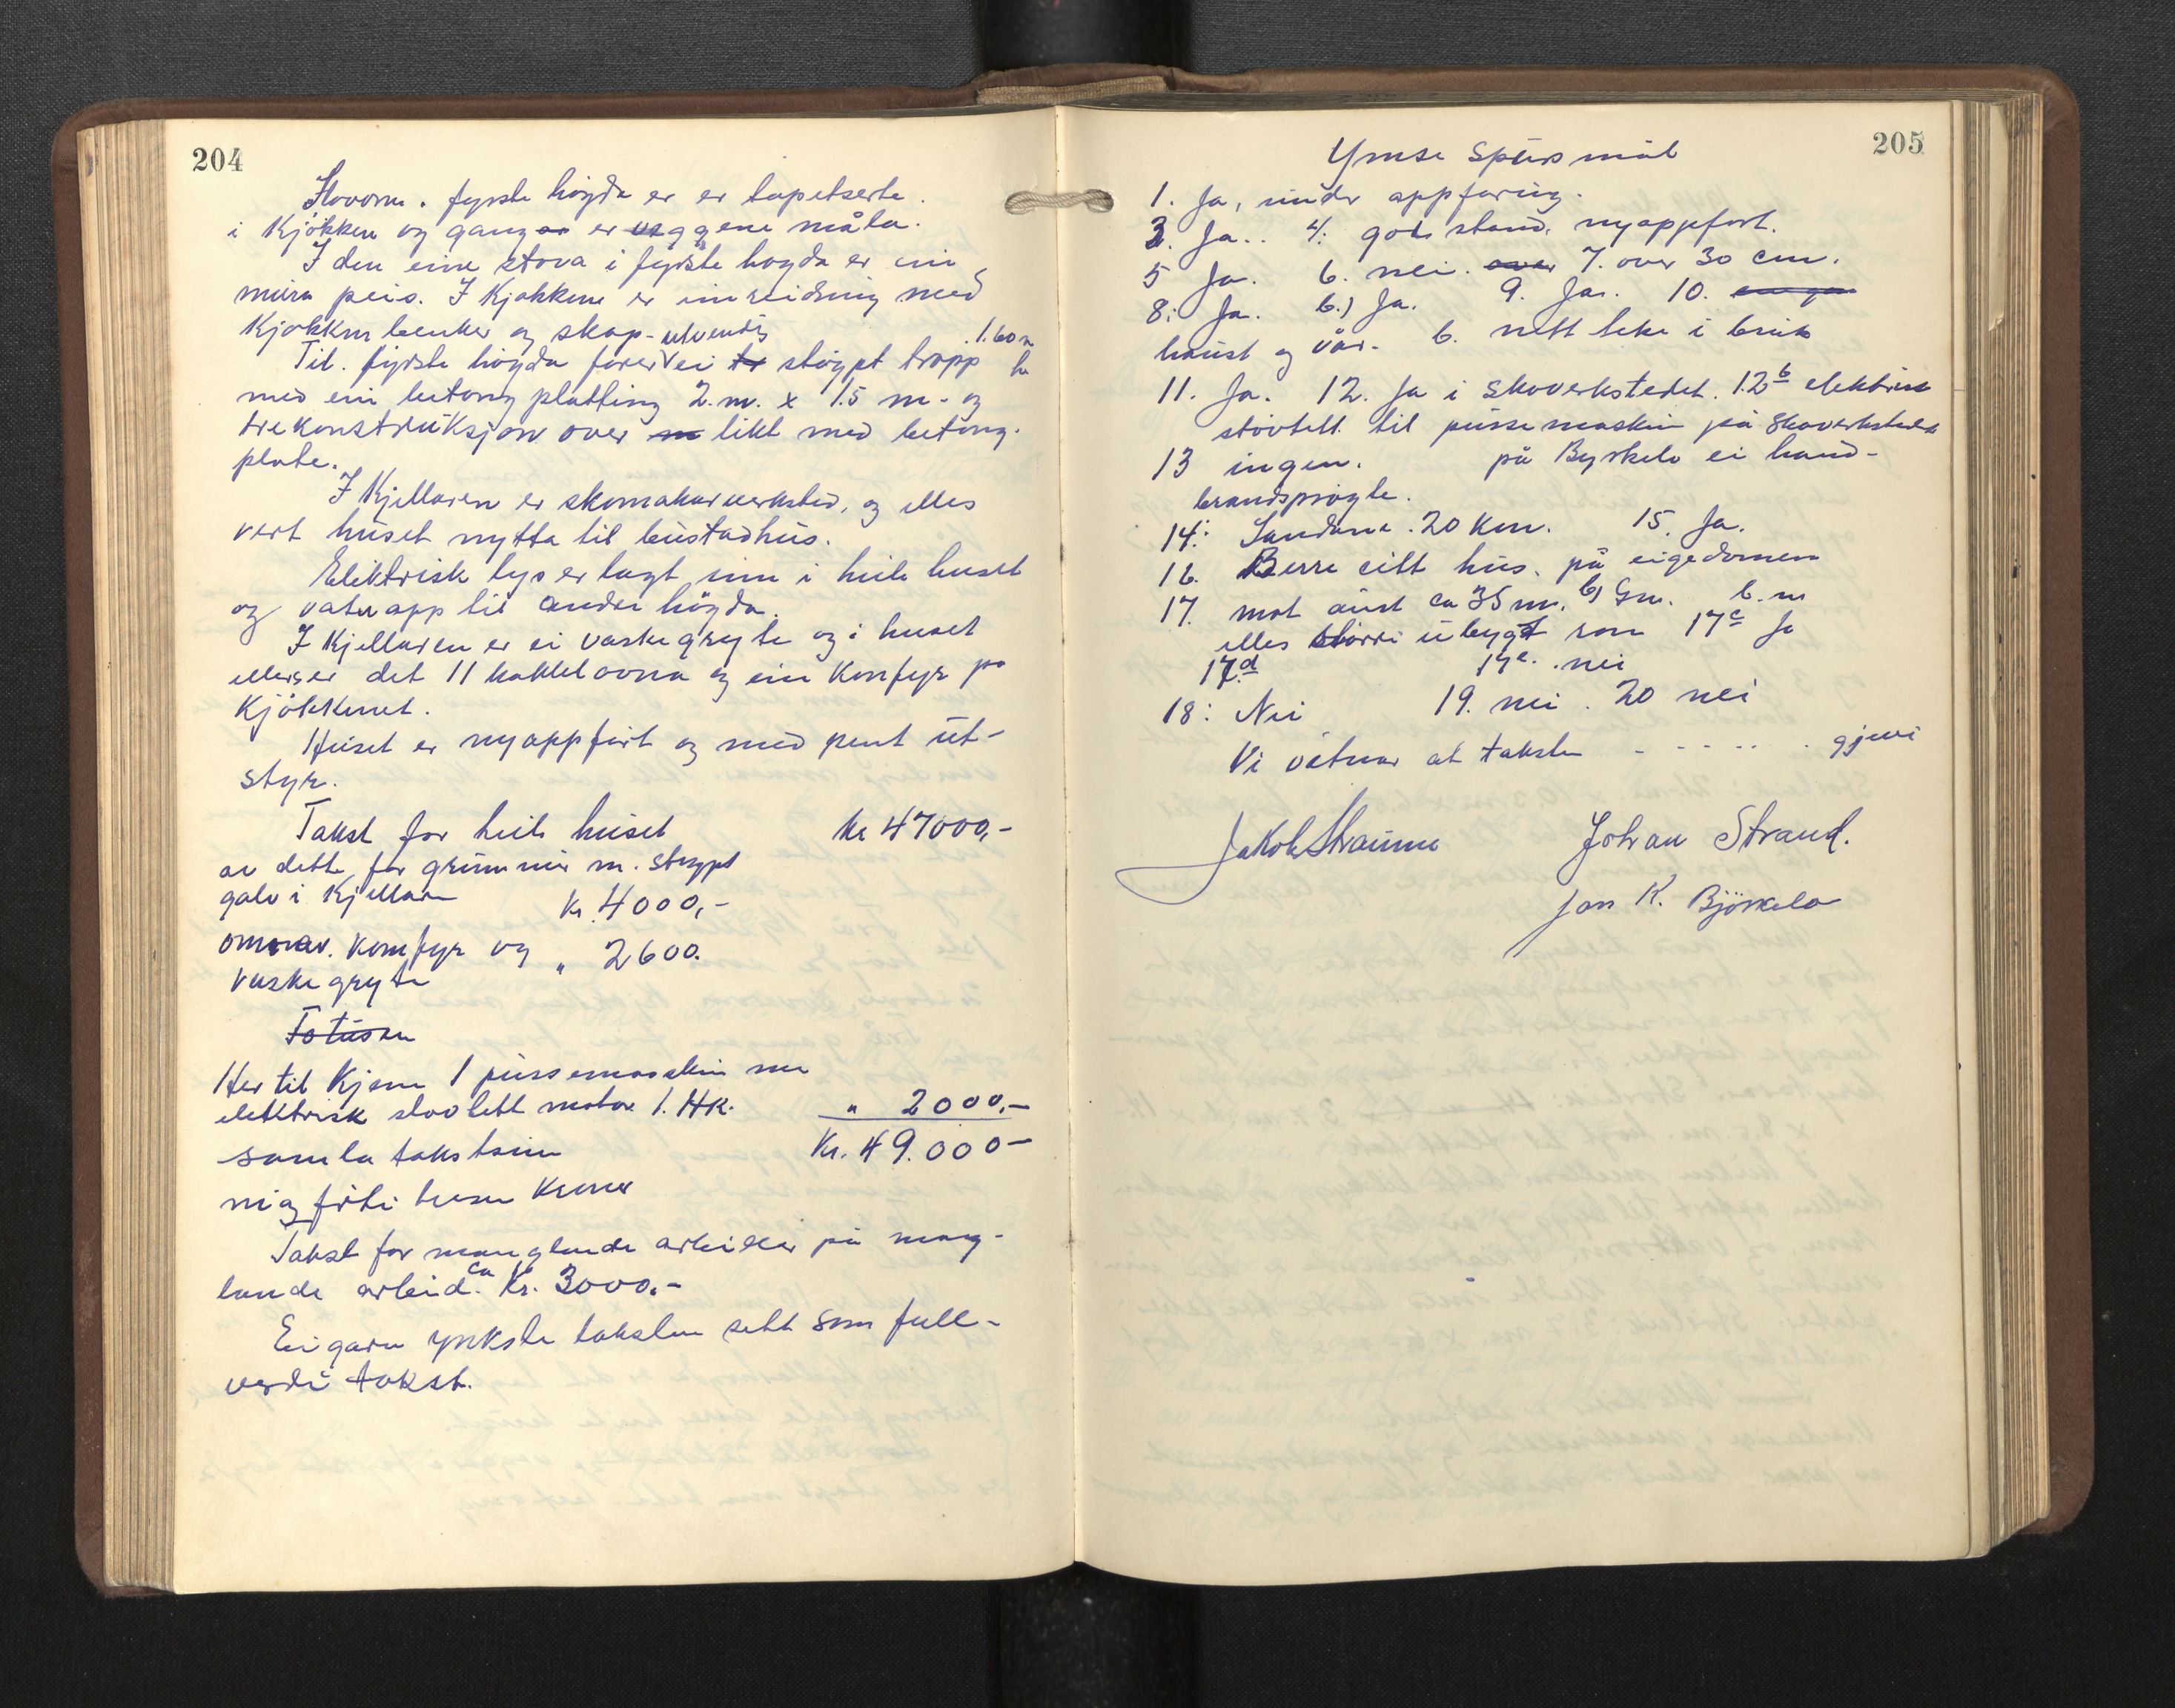 204
Stovorne i fyrste högda er er tapetserte.
i Kjökken og gangar er veggene måla.
I den eine stova i fyrste högda er ein
mura peis. I Kjøkkene er innreidning med
Kjøkkenbenker og skap-
Til fyrste högda fører utvendig ei tr støypt tropp 1.60 m h
med ein betong platting 2. m. x 1.5 m. og
trekonstruksjon over m likt med betong-
plate.
I Kjellaren er skomakarverksted, og elles
vert huset nytta til bustadhus.
Elektrisk lys er lagt inn i heile huset
og vatn app til andre högda.
I Kjellaren er ei vaskegryte og i huset
ellers er det 11 kakkelovna og ein Komfyr på
Kjökkenet.
Huset er nyoppfört og med pent ut-
styr.
Takst for heile huset Kr 47000,-
av dette for grunnmur m. støypt
golv i Kjellaren Kr. 4000,-
omnar. Komfyr og " 2600.
vaskegryte
Fotusen
Her til Kjem 1 pussemaskin med
elektrisk stovlett motor 1. HK. " 2000,-
samla takstsum Kr. 49.000-
ni og förti tusen Kroner
Takst for manglande arbeider på mang-
lande arbeid. ca Kr. 3000.-
Eigaren ynskste taksten sett som full-
verdi takst.
205
Ymse spursmål
1. Ja, under oppføring.
3. Ja.. 4. god stand, nyoppført.
5 Ja. 6. nei. over 7. over 30 cm.
8: Ja. b.) Ja. 9. Ja. 10. en gon
haust og vår. b. nett teke i bruk
11. Ja. 12. Ja i skoverkstedet. 12b elektrisk
stovtett til pussemaskin på skoverkstedet
13 ingen. på Byrkelo ei hand-
brandsprøyte.
14: Sandane. 20 Km. 15. Ja.
16. Berre eitt hus. på eigedomen
17. mot aust ca 35 m. b) 9 m. b. m
elles större ubygt rom 17c Ja
17.d 17e. nei
18: Nei 19. nei. 20 nei
Vi vitnar at taksten - - - - - . gjevi
Jakob Straume Johan Strand.
Jon K. Björkelo